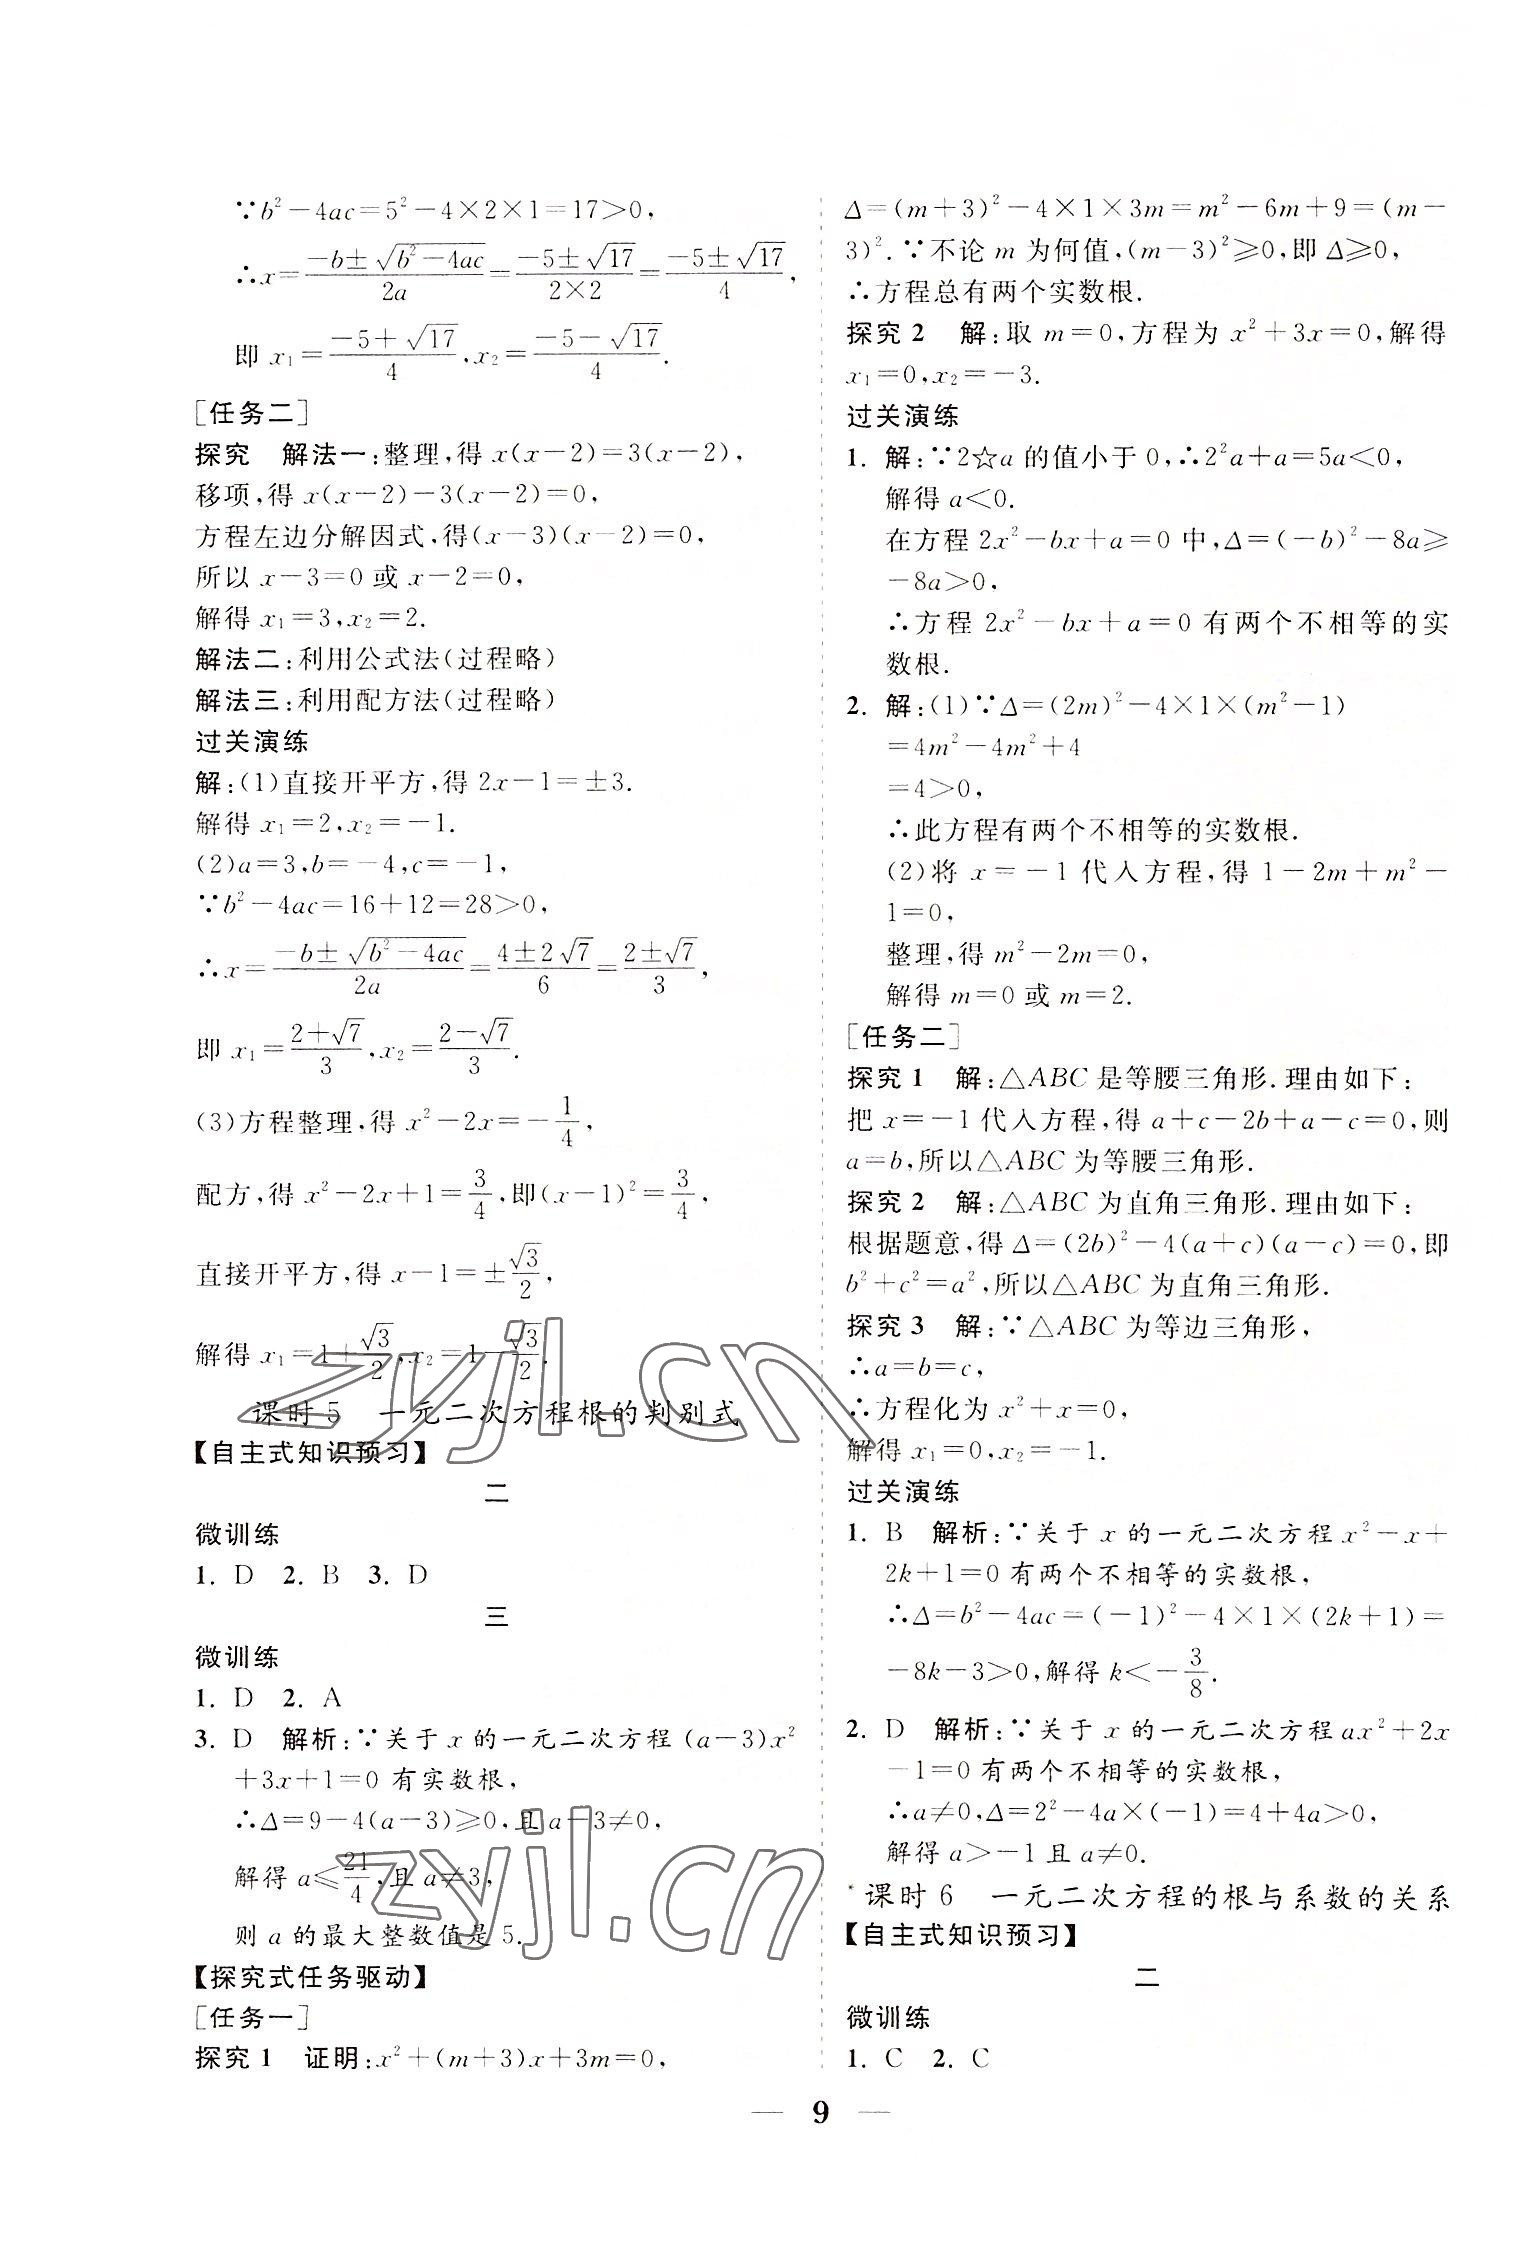 ∵b²-4ac=5²-4×2×1=17>0,
∴x=\frac{-b±\sqrt{b²-4ac}}{2a}=\frac{-5±\sqrt{17}}{2×2}=\frac{-5±\sqrt{17}}{4},
即 x₁=\frac{-5+\sqrt{17}}{4},x₂=\frac{-5-\sqrt{17}}{4}.
[任务二]
探究 解法一:整理,得 x(x-2)=3(x-2),
移项,得 x(x-2)-3(x-2)=0,
方程左边分解因式,得(x-3)(x-2)=0,
所以 x-3=0 或 x-2=0,
解得 x₁=3,x₂=2.
解法二:利用公式法(过程略)
解法三:利用配方法(过程略)
过关演练
解:(1)直接开平方,得 2x-1=±3.
解得 x₁=2,x₂=-1.
(2)a=3,b=-4,c=-1,
∵b²-4ac=16+12=28>0,
∴x=\frac{-b±\sqrt{b²-4ac}}{2a}=\frac{4±2\sqrt{7}}{6}=\frac{2±\sqrt{7}}{3},
即 x₁=\frac{2+\sqrt{7}}{3},x₂=\frac{2-\sqrt{7}}{3}.
(3)方程整理,得 x²-2x=-\frac{1}{4},
配方,得 x²-2x+1=\frac{3}{4},即(x-1)²=\frac{3}{4},
直接开平方,得 x-1=±\frac{\sqrt{3}}{2},
解得 x₁=1+\frac{\sqrt{3}}{2},x₂=1-\frac{\sqrt{3}}{2}.
课时 5 一元二次方程根的判别式
【自主式知识预习】
二
微训练
1. D 2. B 3. D
三
微训练
1. D 2. A
3. D 解析:∵关于 x 的一元二次方程 (a-3)x²
+3x+1=0 有实数根,
∴Δ=9-4(a-3)≥0,且 a-3≠0,
解得 a≤\frac{21}{4},且 a≠3,
则 a 的最大整数值是 5.
【探究式任务驱动】
[任务一]
探究 1 证明:x²+(m+3)x+3m=0,
Δ=(m+3)²-4×1×3m=m²-6m+9=(m-
3)².∵不论 m 为何值,(m-3)²≥0,即 Δ≥0,
∴方程总有两个实数根.
探究 2 解:取 m=0,方程为 x²+3x=0,解得
x₁=0,x₂=-3.
过关演练
1. 解:∵2☆a 的值小于 0,∴2²a+a=5a<0,
解得 a<0.
在方程 2x²-bx+a=0 中,Δ=(-b)²-8a≥
-8a>0,
∴方程 2x²-bx+a=0 有两个不相等的实
数根.
2. 解:(1)∵Δ=(2m)²-4×1×(m²-1)
=4m²-4m²+4
=4>0,
∴此方程有两个不相等的实数根.
(2)将 x=-1 代入方程,得 1-2m+m²-
1=0,
整理,得 m²-2m=0,
解得 m=0 或 m=2.
[任务二]
探究 1 解:△ABC 是等腰三角形.理由如下:
把 x=-1 代入方程,得 a+c-2b+a-c=0,则
a=b,所以△ABC 为等腰三角形.
探究 2 解:△ABC 为直角三角形.理由如下:
根据题意,得 Δ=(2b)²-4(a+c)(a-c)=0,即
b²+c²=a²,所以△ABC 为直角三角形.
探究 3 解:∵△ABC 为等边三角形,
∴a=b=c,
∴方程化为 x²+x=0,
解得 x₁=0,x₂=-1.
过关演练
1. B 解析:∵关于 x 的一元二次方程 x²-x+
2k+1=0 有两个不相等的实数根,
∴Δ=b²-4ac=(-1)²-4×1×(2k+1)=
-8k-3>0,解得 k<-\frac{3}{8}.
2. D 解析:∵关于 x 的一元二次方程 ax²+2x
-1=0 有两个不相等的实数根,
∴a≠0,Δ=2²-4a×(-1)=4+4a>0,
解得 a>-1 且 a≠0.
*课时 6 一元二次方程的根与系数的关系
【自主式知识预习】
二
微训练
1. C 2. C
— 9 —
zyjl.cn
zyjl.cn